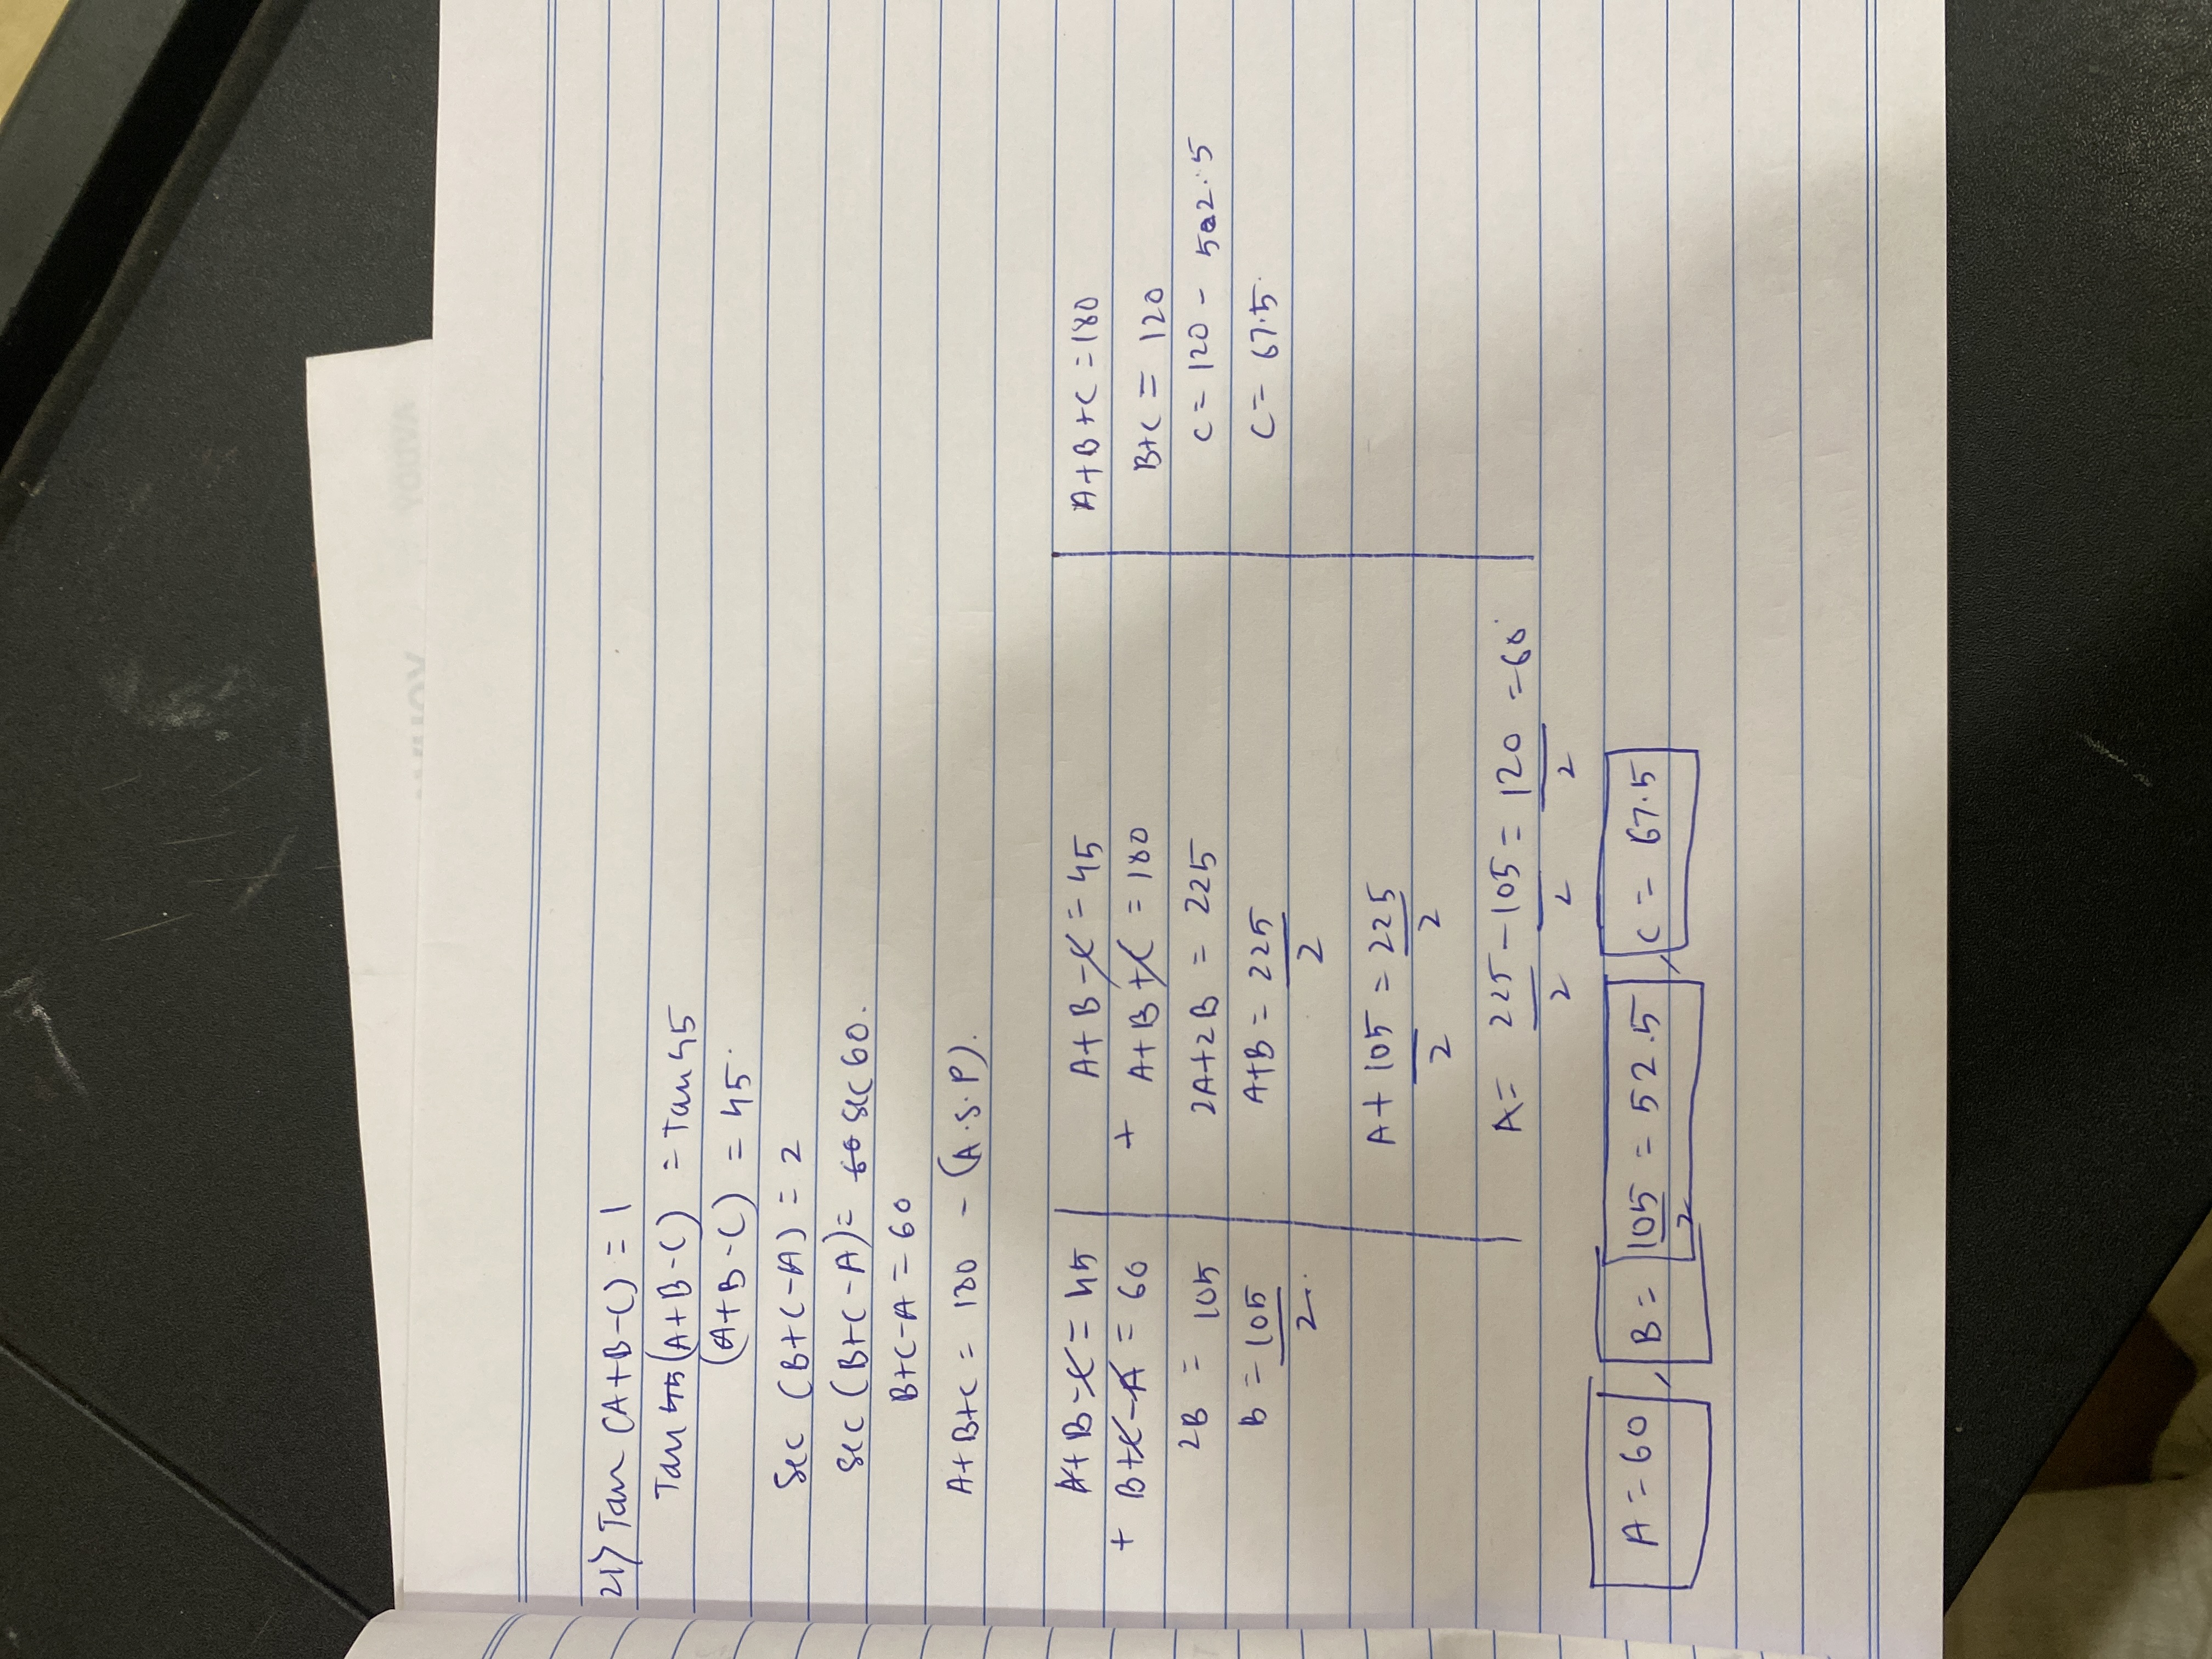 21) Tan (A+B-C) = 1
Tan 45 (A+B-C) = Tan 45
(A+B-C) = 45.
Sec (B+C-A) = 2
Sec (B+C-A) = 60 Sec 60.
B+C-A = 60
A+B+C = 180 - (A.S.P).
A+B-C = 45
+ B+C-A = 60
2B = 105
B = 105/2.
A+B-C = 45
+ A+B+C = 180
2A+2B = 225
A+B = 225/2
A + 105/2 = 225/2
A = 225/2 - 105/2 = 120/2 = 60.
A+B+C = 180
B+C = 120
C = 120 - 52.5
C = 67.5.
A = 60, B = 105/2 = 52.5, C = 67.5